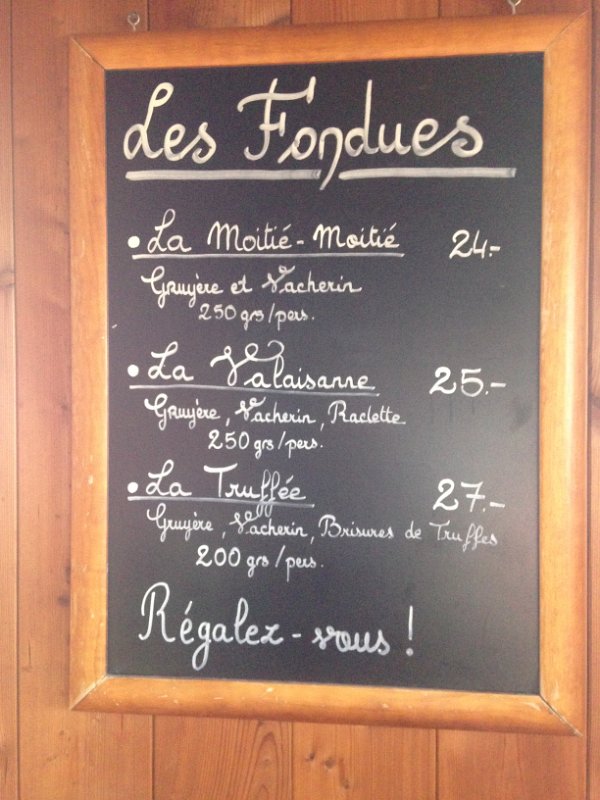 Les Fondues
• La Moitié-Moitié 24.-
Gruyère et Vacherin
250 grs/pers.
• La Valaisanne 25.-
Gruyère, Vacherin, Raclette
250 grs/pers.
• La Truffée 27.-
Gruyère, Vacherin, Brisures de Truffes
200 grs/pers.
Régalez-vous !